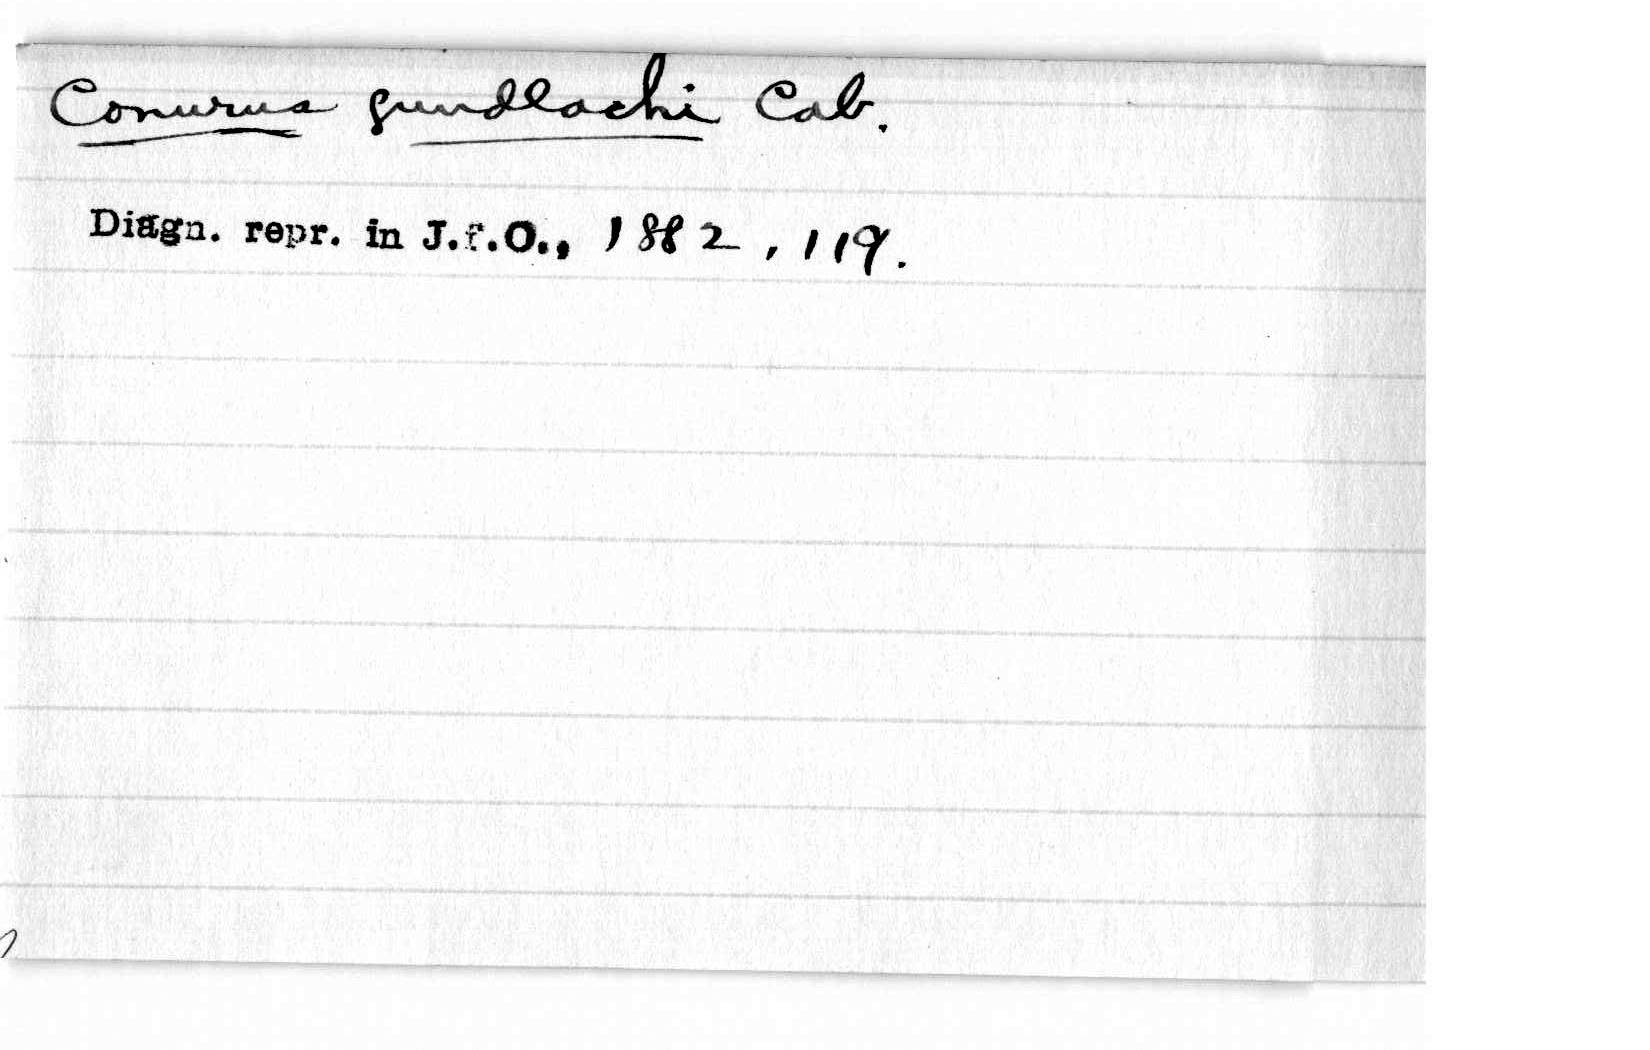 Conurus gundlachi Cab.
Diagn. repr. in J.f.O., 1882, 119.